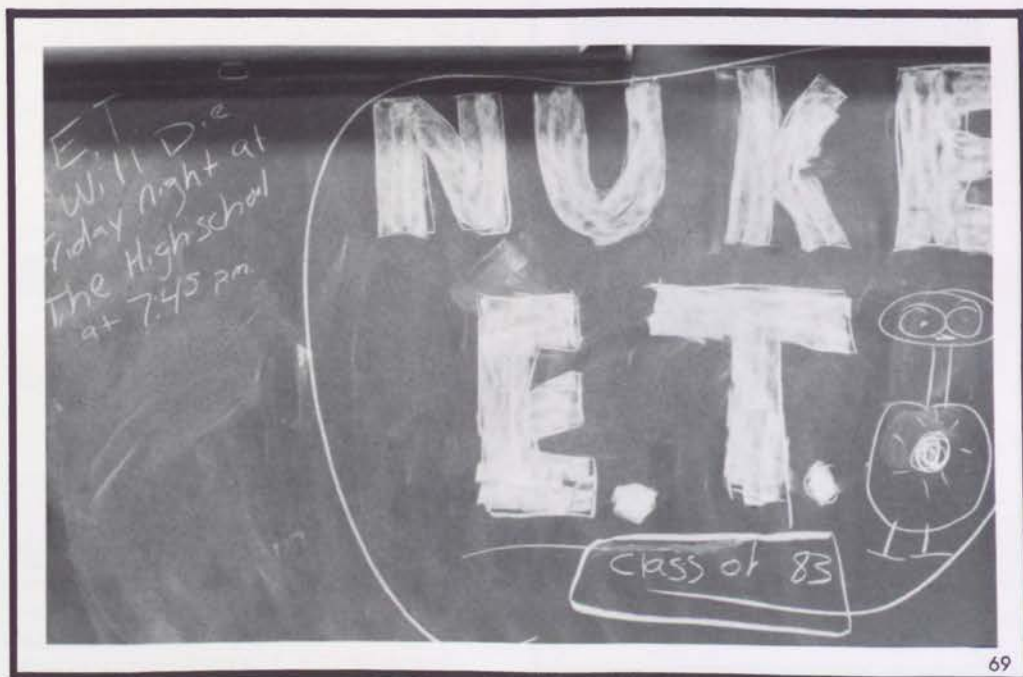 E.T.
Will Die
Friday night at
The High school
at 7:45 pm.
NUKE
E.T.
class of 83
69